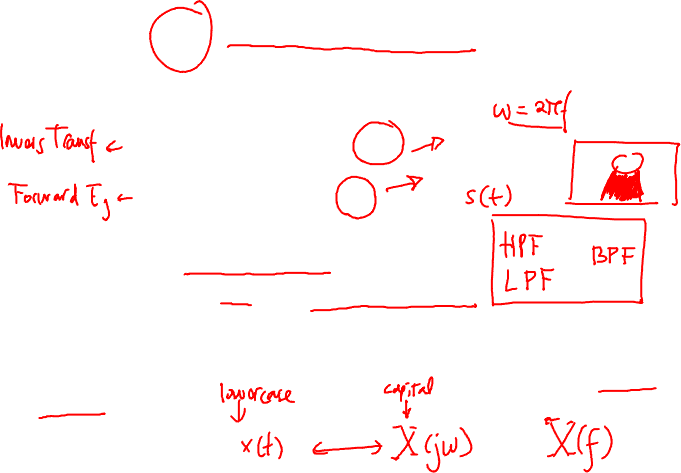 ω = 2πf
Invers Transf ←
Forward Eq ←
s(t)
HPF BPF
LPF
lowercase capital
x(t) ↔ X(jω) X(f)